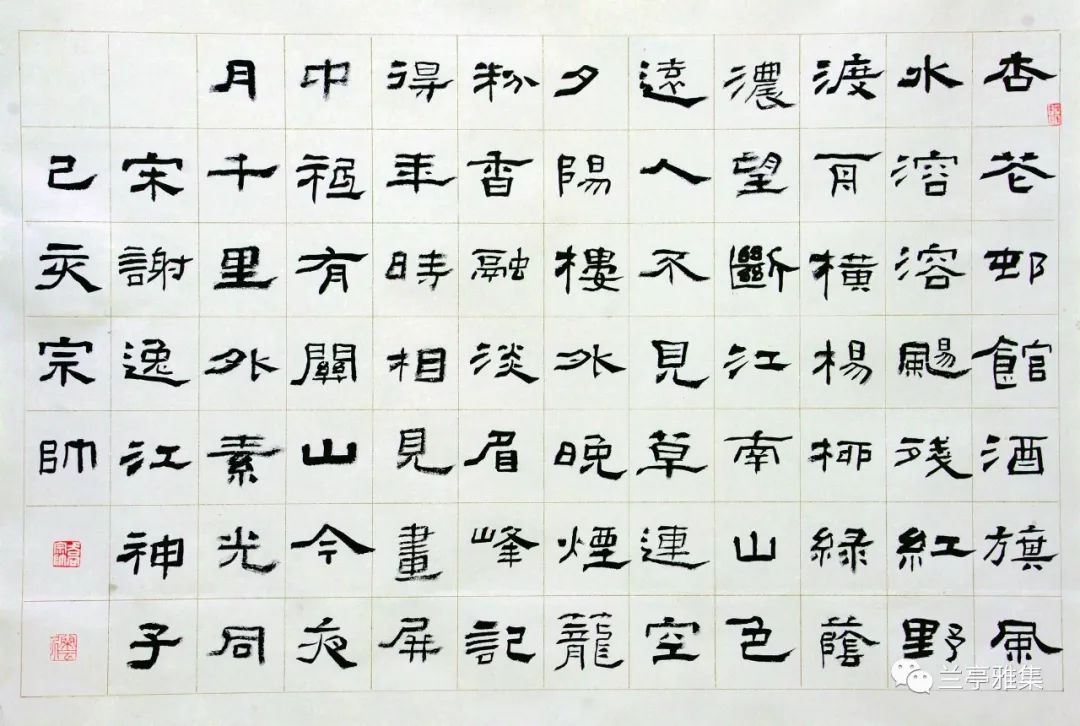 杏花邨館酒旗風
水溶溶颺殘紅野
渡舟橫楊柳綠蔭
濃望斷江南山色
遠人不見草連空
夕陽樓外晚煙籠
粉香融淡眉峰記
得年時相見畫屏
中祗有關山今夜
月千里外素光同
宋謝逸江神子
己亥宗帥
兰亭雅集